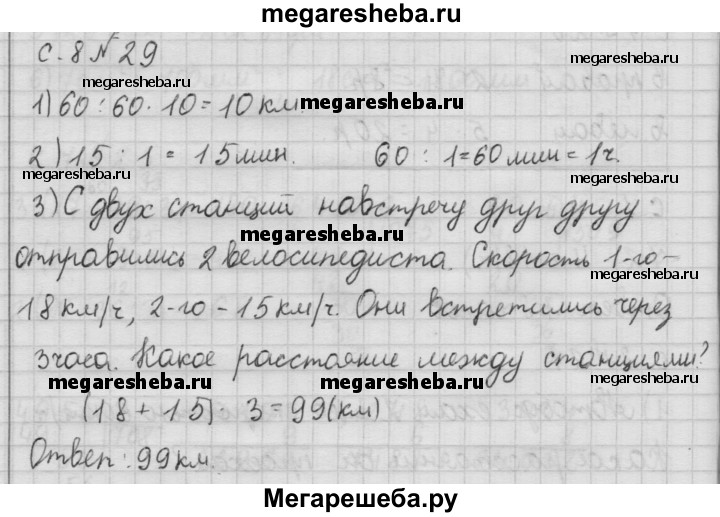 megaresheba.ru
с. 8 № 29
megaresheba.ru megaresheba.ru
1) 60 : 60 · 10 = 10 км. megaresheba.ru
2) 15 : 1 = 15 мин. 60 : 1 = 60 мин = 1 ч.
megaresheba.ru megaresheba.ru
3) С двух станций навстречу друг другу
megaresheba.ru
отправились 2 велосипедиста. Скорость 1-го -
megaresheba.ru
18 км/ч, 2-го - 15 км/ч. Они встретились через
3 часа. Какое расстояние между станциями?
megaresheba.ru megaresheba.ru megaresheba.ru
(18 + 15) 3 = 99 (км)
Ответ: 99 км.
megaresheba.ru
Мегарешеба.ру